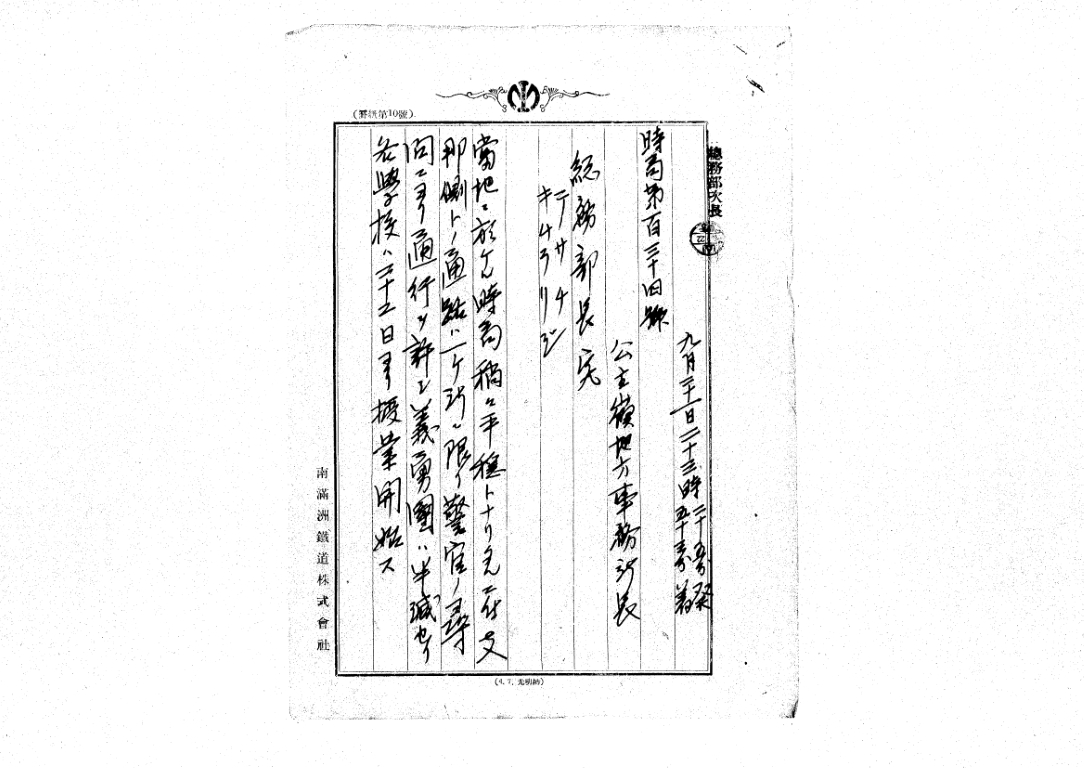 (罫紙第10號)
總務部次長
九月二十一日二十三時二十五分發
五十五分着
時局第百三十四號
公主嶺地方事務所長
総務部長宛
當地ニ於ケル時局稍々平穏トナリタルニ付支
那側トノ通路ハ一ケ所ニ限リ警官ノ尋
問ニヨリ通行ヲ許シ義勇團ハ半減セリ
各學校ハ二十二日ヨリ授業開始ス
南滿洲鐵道株式會社